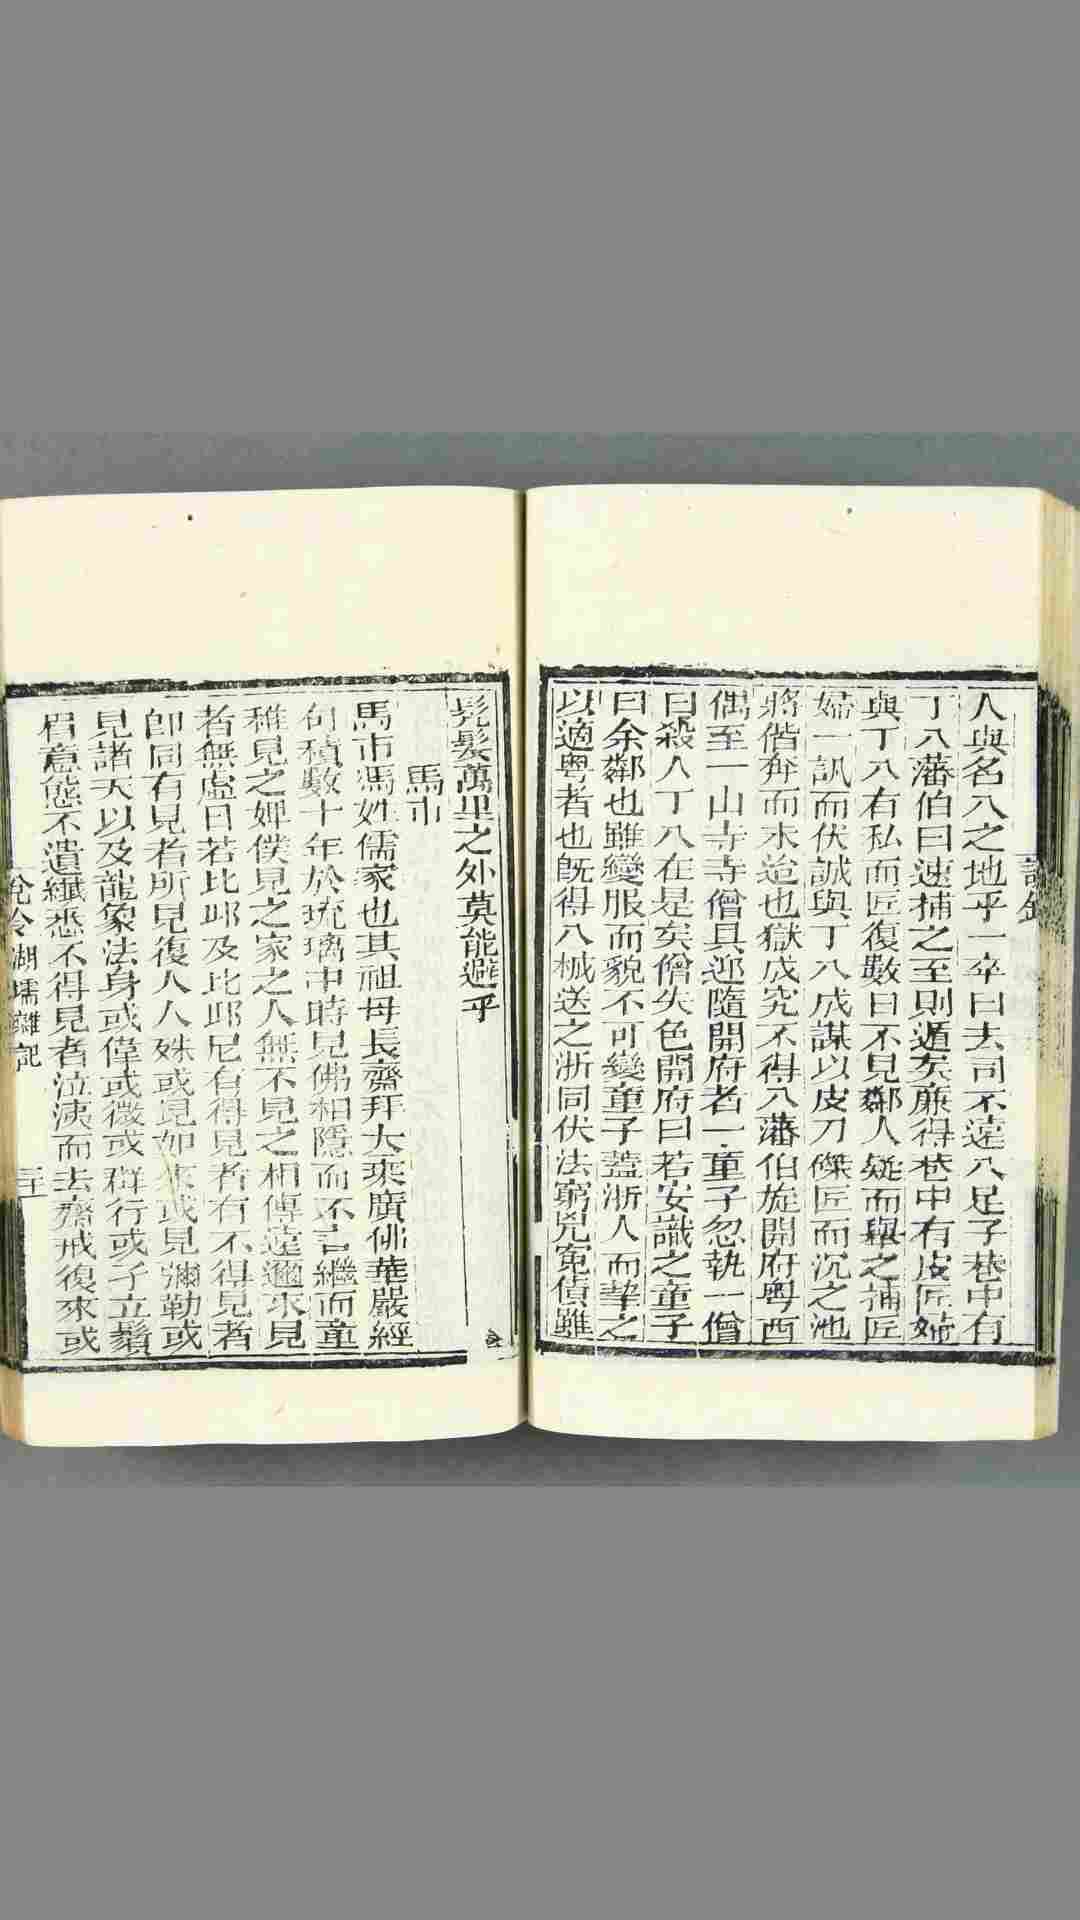 人與名八之地乎一卒曰去司不遠八足子巷中有
丁八藩伯曰速捕之至則遁矣廉得巷中有皮匠婦
與丁八有私而匠復數日不見鄰人疑而舉之捕匠
婦一訊而伏誠與丁八成謀以皮刀磔匠而沉之池
將偕奔而未迨也獄成究不得八藩伯旋開府粵西
偶至一山寺寺僧具迎隨開府者一童子忽執一僧
曰殺人丁八在是矣僧失色開府曰若安識之童子
曰余鄰也雖變服而貌不可變童子蓋浙人而摯之
以適粵者也旣得八械送之浙同伏法窮兇寃債雖
髡髮萬里之外莫能避乎
馬市
馬市馮姓儒家也其祖母長齋拜大乘廣佛華嚴經
句積數十年於琉璃中時見佛相隱而不言繼而童
稚見之婢僕見之家之人無不見之相傳遠邇求見
者無虛日若比邱及比邱尼有得見者有不得見者
卽同有見者所見復人人殊或見如來或見彌勒或
見諸天以及龍象法身或偉或微或群行或孑立鬚
眉意態不遺纖悉不得見者泣洟而去齋戒復來或
說鈴 湖壖雜記 二十